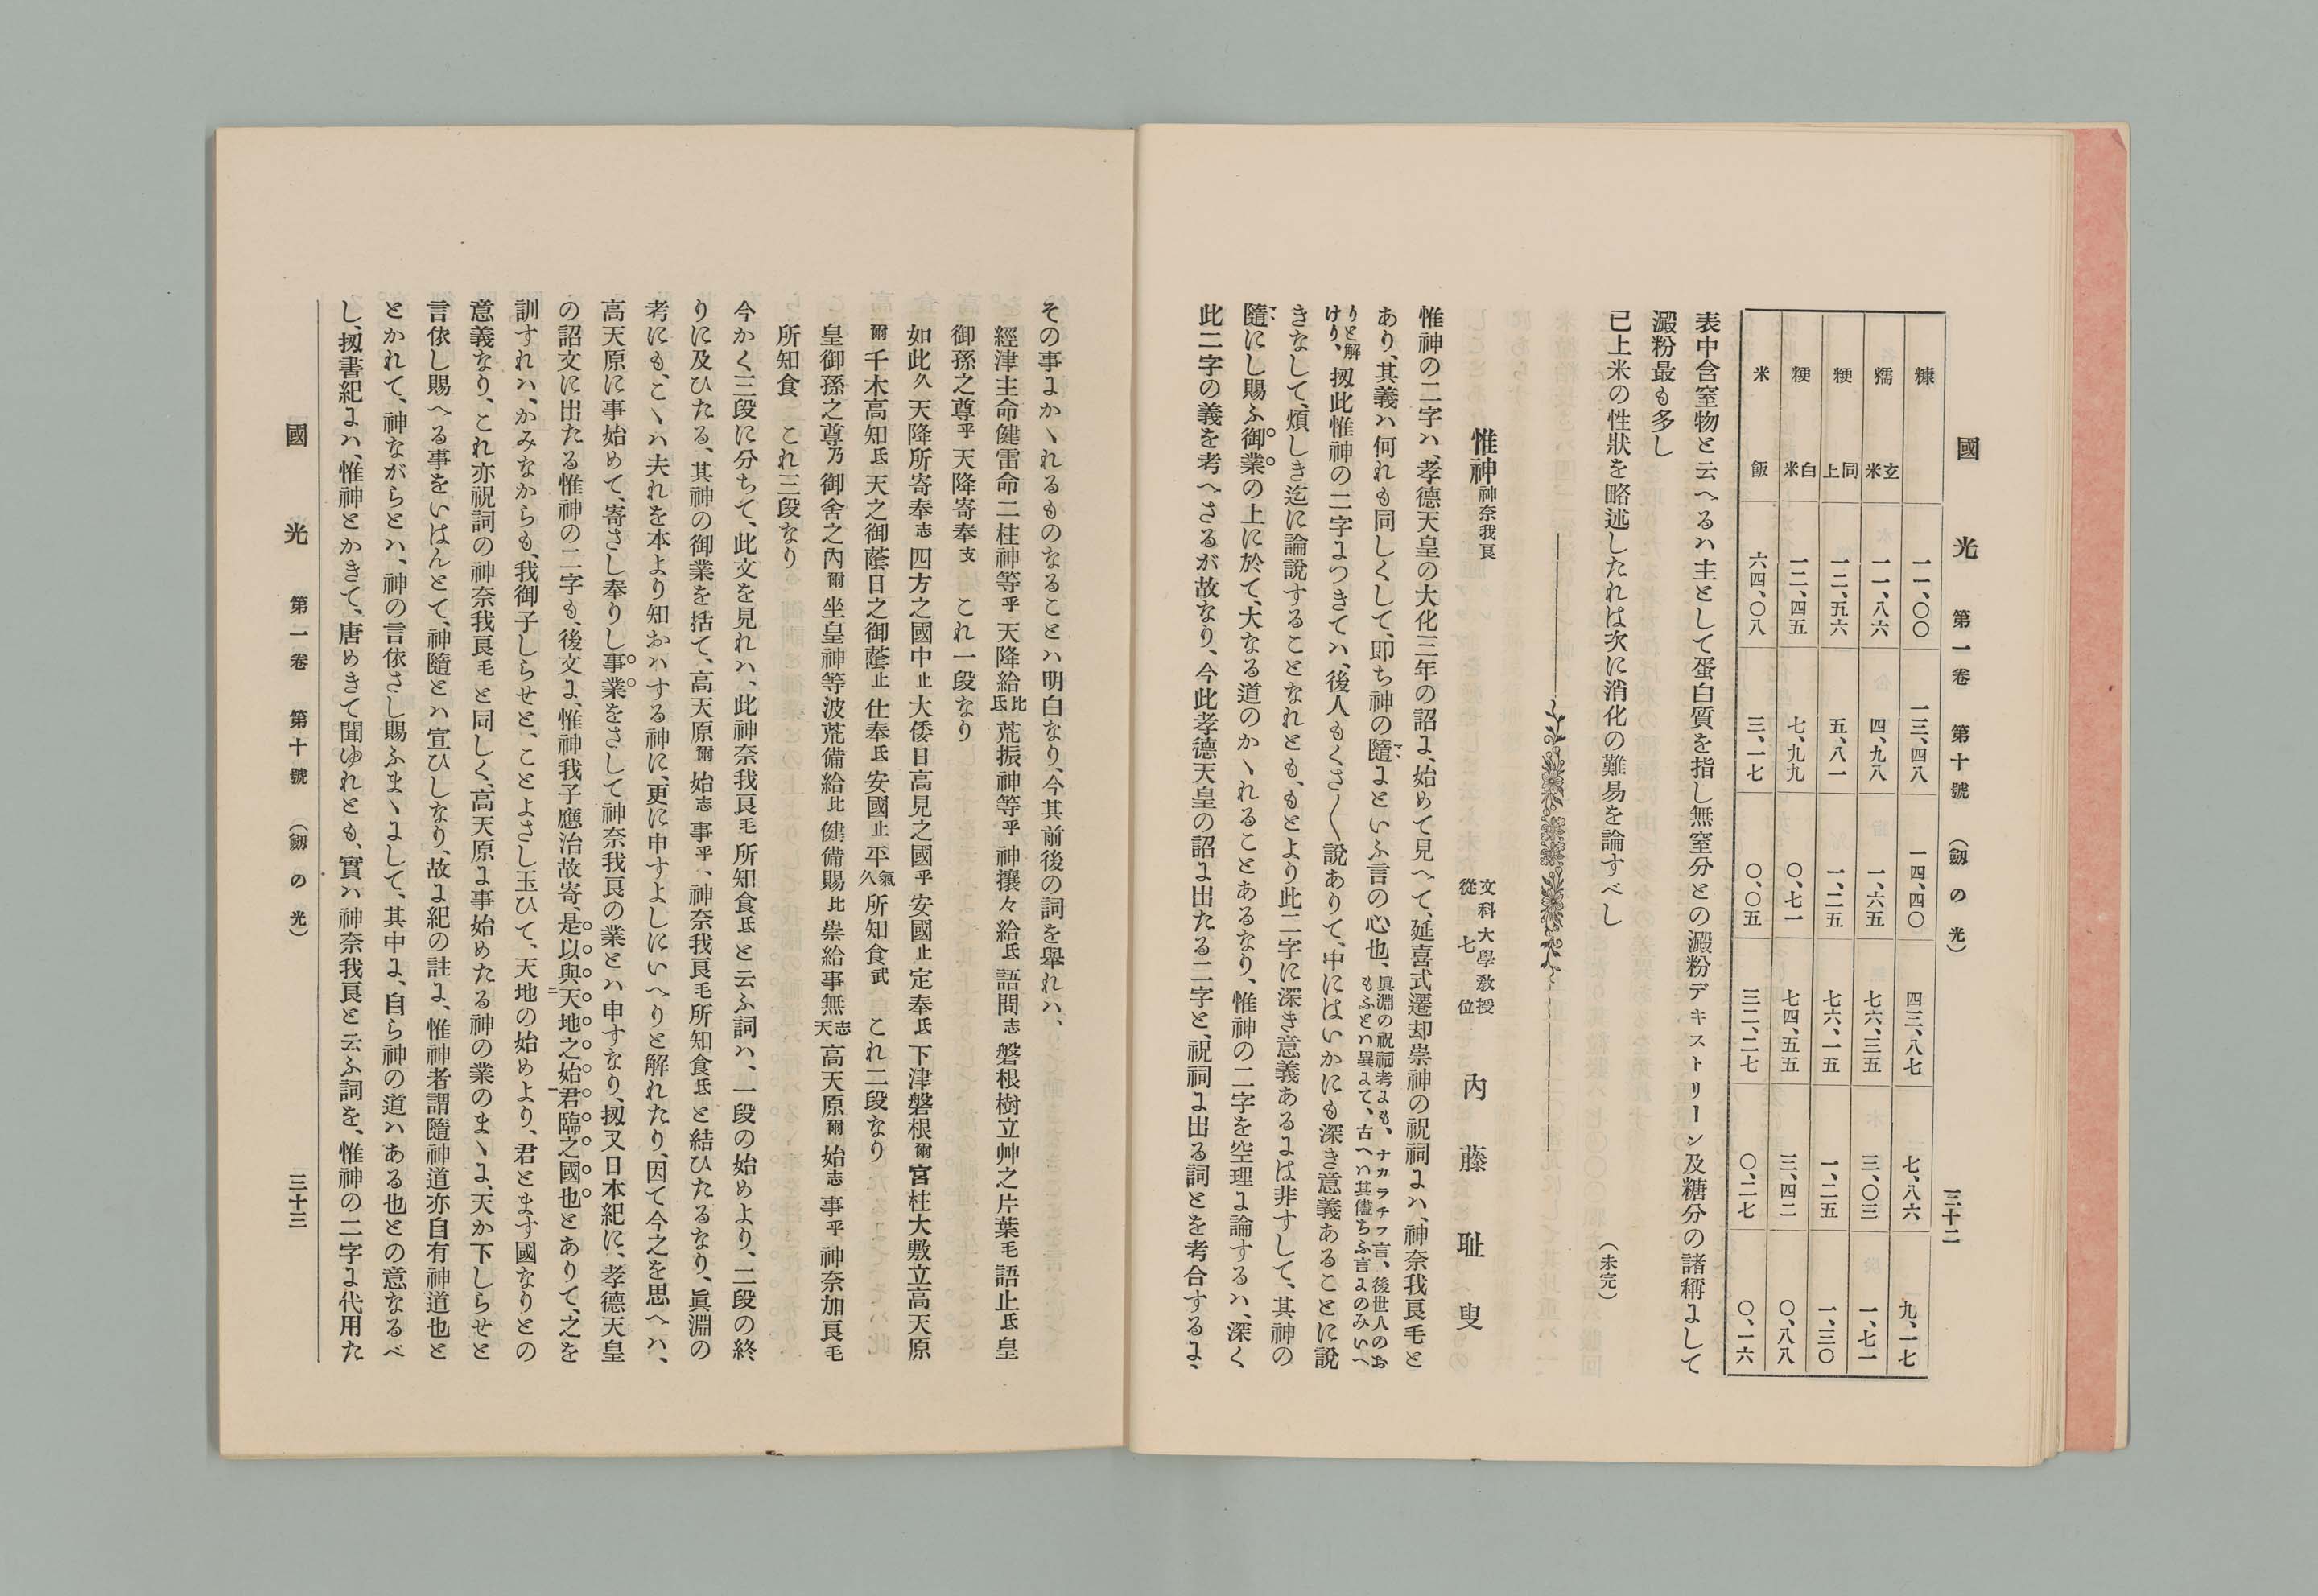 國光 第一卷 第十號 (劔の光) 三十二
糠 一一、〇〇 一三、四八 一四、四〇 四三、八七 七、八六 九、一七
糯 玄米 一一、八六 四、九八 一、六五 七六、三五 三、〇三 一、七一
粳 同上 一二、五六 五、八一 一、二五 七六、一五 一、二五 一、三〇
粳 白米 一二、四五 七、九九 〇、七一 七四、五五 三、四二 〇、八八
米飯 六四、〇八 三、一七 〇、〇五 三二、二七 〇、二七 〇、一六
表中含窒物と云へるハ主として蛋白質を指し無窒分との澱粉デキストリーン及糖分の諸稱よして
澱粉最も多し
已上米の性狀を略述したれは次に消化の難易を論すべし
(未完)
惟神 神奈我良
文科大學敎授
從七位
內藤耻叟
惟神の二字ハ、孝德天皇の大化三年の詔よ、始めて見へて、延喜式遷却祟神の祝祠よハ、神奈我良毛と
あり、其義ハ何れも同しくして、即ち神の隨よといふ言の心也、眞淵の祝祠考よも、ナカラチフ言、後世人のお
もふとハ異よて、古へハ其儘ちふ言よのみいへ
りと解
けり、扨此惟神の二字よつきてハ、後人もくさ〱說ありて、中にはいかにも深き意義あることに說
きなして、煩しき迄に論說することなれとも、もとより此二字に深き意義あるよは非すして、其神の
隨にし賜ふ御業の上に於て、大なる道のかゝれることあるなり、惟神の二字を空理よ論するハ、深く
此二字の義を考へさるが故なり、今此孝德天皇の詔よ出たる二字と、祝祠よ出る詞とを考合するよ、
その事よかゝれるものなることハ明白なり、今其前後の詞を舉れハ、
經津主命健雷命二柱神等乎天降給比氐荒振神等乎神攘々給氐語問志磐根樹立艸之片葉毛語止氐皇
御孫之尊乎天降寄奉支 これ一段なり
如此久天降所寄奉志四方之國中止大倭日高見之國乎安國止定奉氐下津磐根爾宮柱大敷立高天原
爾千木高知氐天之御蔭日之御蔭止仕奉氐安國止平氣久所知食武 これ二段なり
皇御孫之尊乃御舍之內爾坐皇神等波荒備給比健備賜比祟給事無志天高天原爾始志事乎神奈加良毛
所知食 これ三段なり
今かく三段に分ちて、此文を見れハ、此神奈我良毛所知食氐と云ふ詞ハ、一段の始めより、二段の終
りに及ひたる、其神の御業を括て、高天原爾始志事乎、神奈我良毛所知食氐と結ひたるなり、眞淵の
考にも、こゝハ夫れを本より知おハする神に、更に申すよしにいへりと解れたり、因て今之を思へハ、
高天原に事始めて、寄さし奉りし事業をさして神奈我良の業とハ申すなり、扨又日本紀に、孝德天皇
の詔文に出たる惟神の二字も、後文よ、惟神我子應治故寄、是以與天地之始君臨之國也とありて、之を
訓すれハ、かみなからも、我御子しらせと、ことよさし玉ひて、天地の始めより、君とます國なりとの
意義なり、これ亦祝詞の神奈我良毛と同しく、高天原よ事始めたる神の業のまゝよ、天か下しらせと
言依し賜へる事をいはんとて、神隨とハ宣ひしなり、故よ紀の註よ、惟神者謂隨神道亦自有神道也と
とかれて、神ながらとハ、神の言依さし賜ふまゝよして、其中よ、自ら神の道ハある也との意なるべ
し、扨書紀よハ、惟神とかきて、唐めきて聞ゆれとも、實ハ神奈我良と云ふ詞を、惟神の二字よ代用た
國光 第一卷 第十號 (劔の光) 三十三